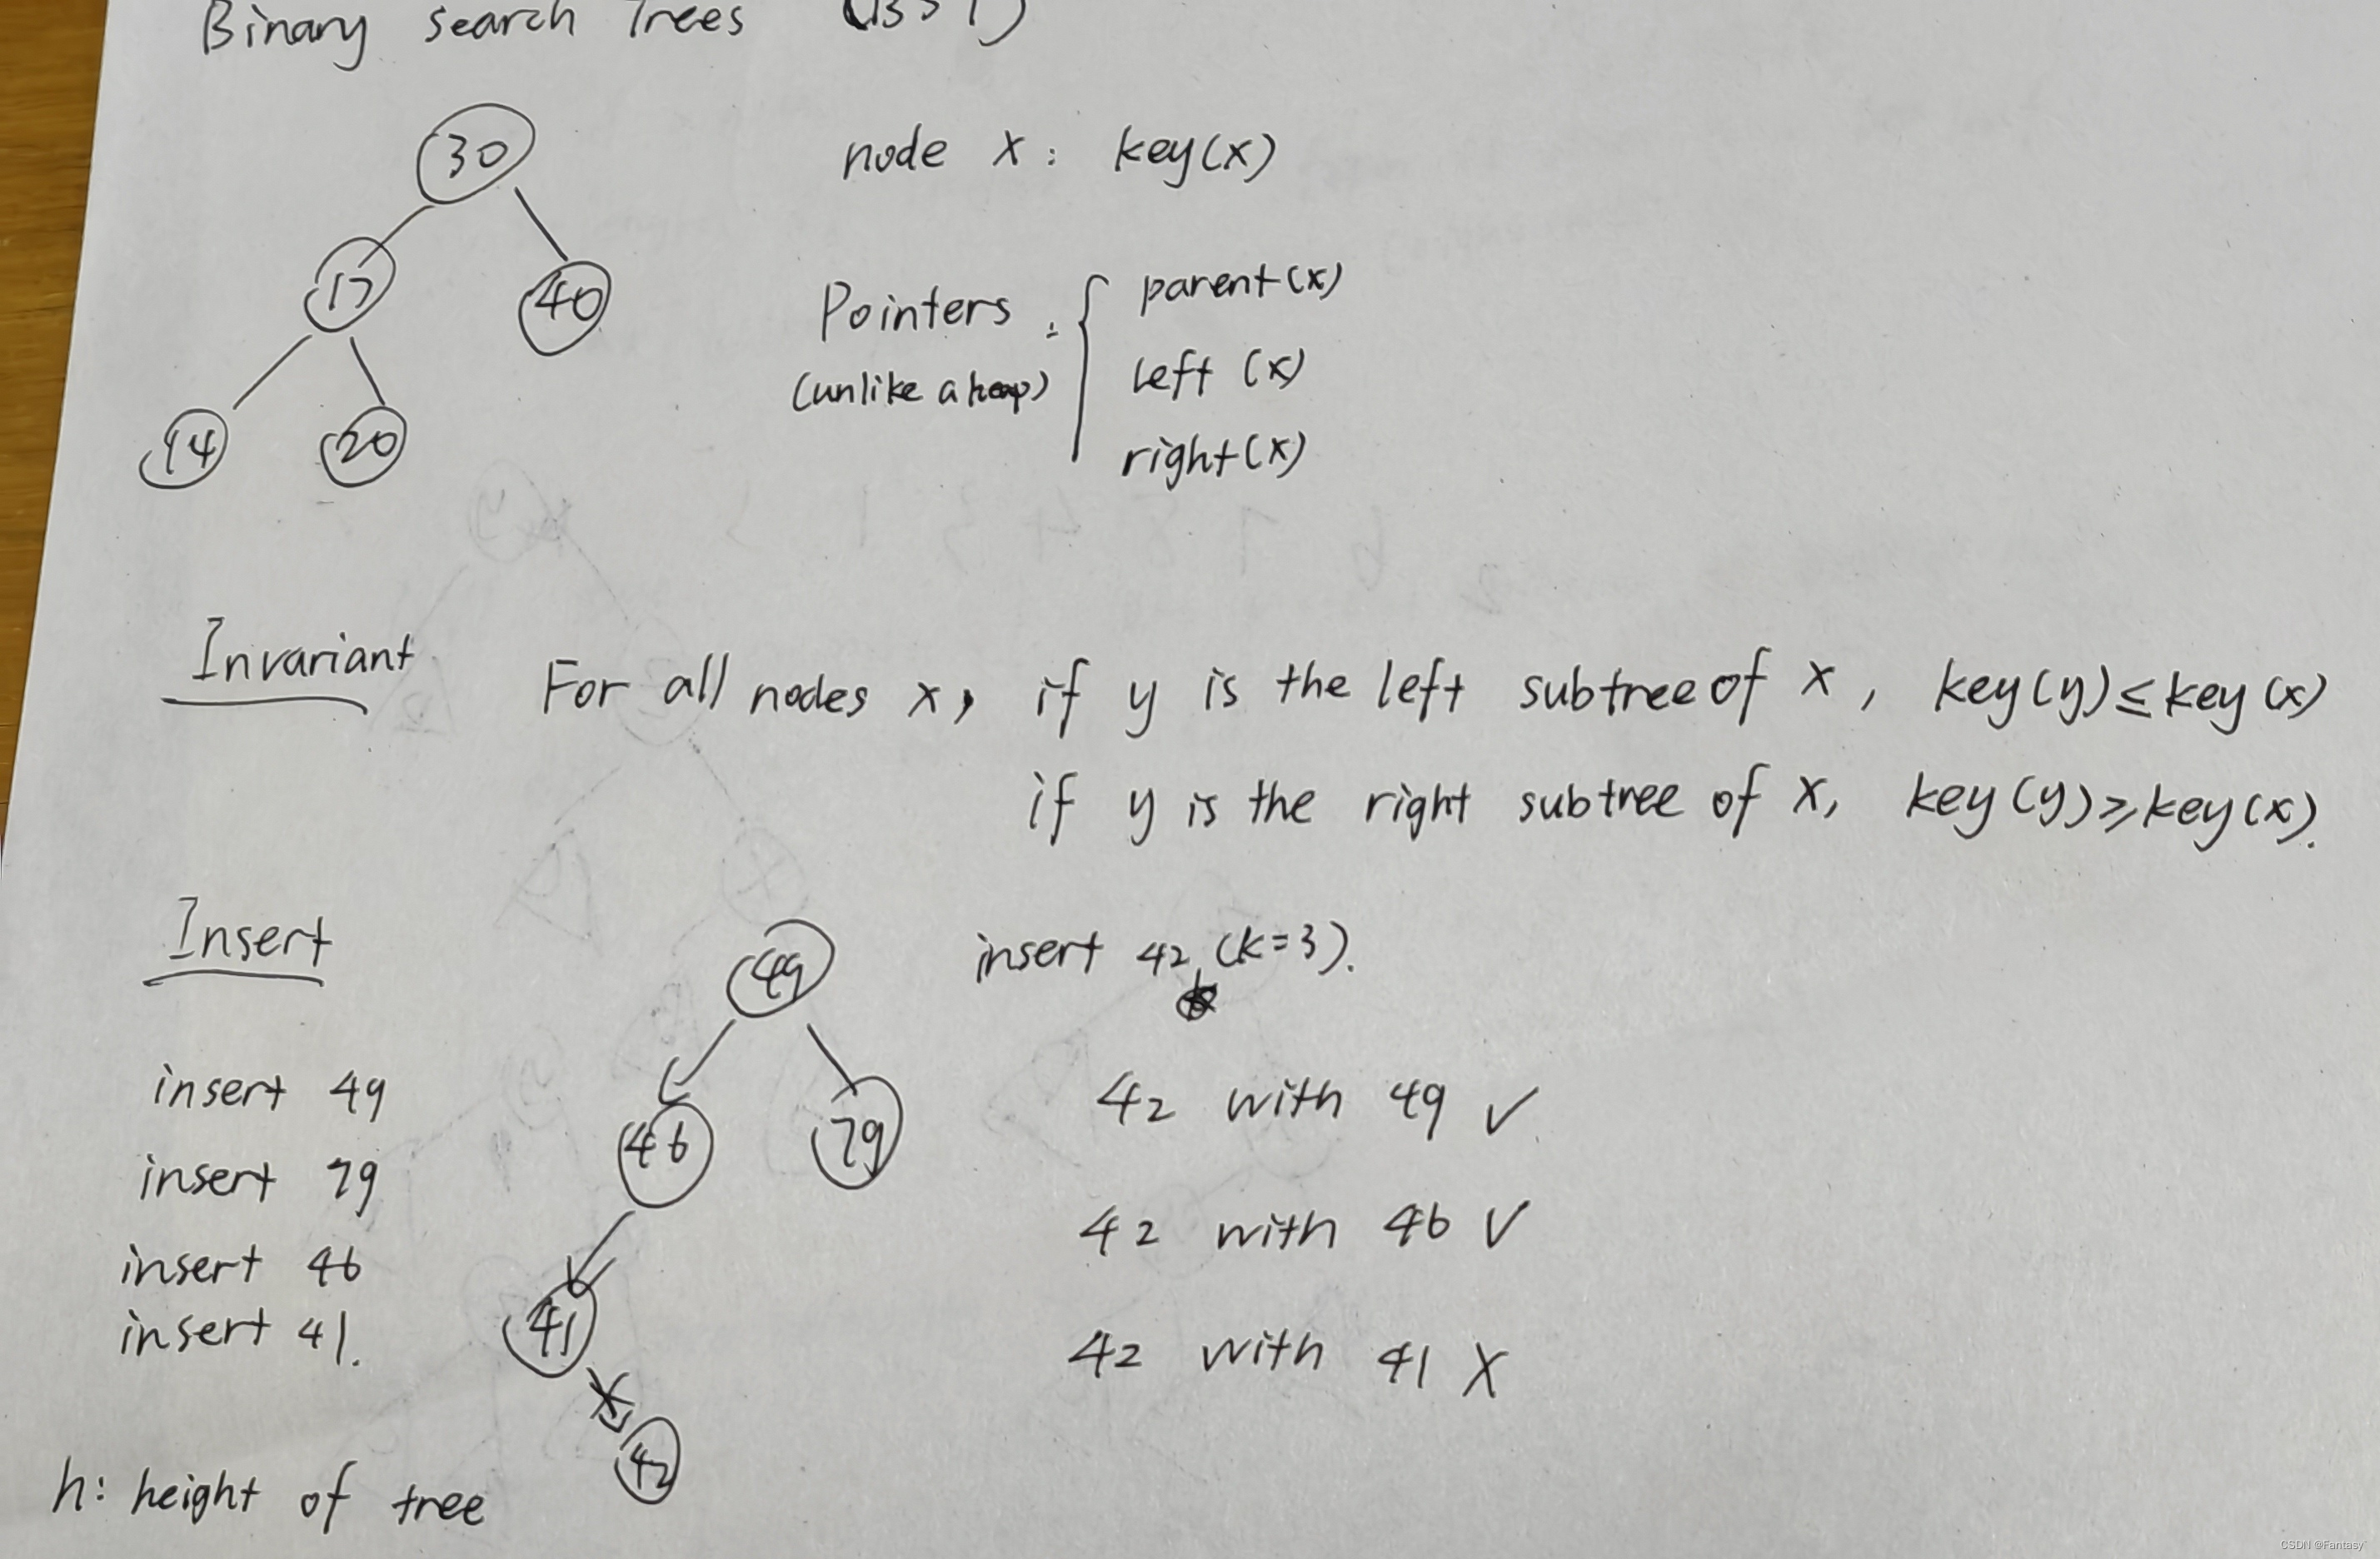 Binary search Trees (BST)
30
node x: key(x)
17
40
Pointers: { parent(x)
(unlike a heap)
left (x)
right(x)
14
20
Invariant For all nodes x, if y is the left subtree of x, key(y)≤key(x)
if y is the right subtree of x, key(y)≥key(x).
Insert
49
insert 42 (k=3).
insert 49
42 with 49 ✓
46
79
insert 79
42 with 46 ✓
insert 46
insert 41.
41
42 with 41 X
42
h: height of tree
CSDN @Fantasy`